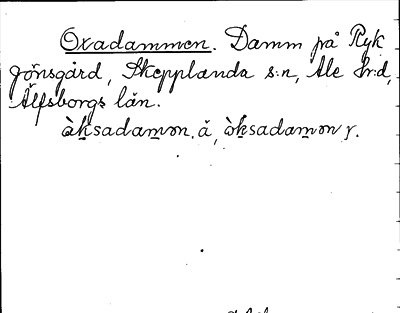 Oxadammen. Damm på Ryk
jönsgård, Skepplanda s:n, Ale h:d,
Älfsborgs län.
àksadamən, å, òksadamən y.